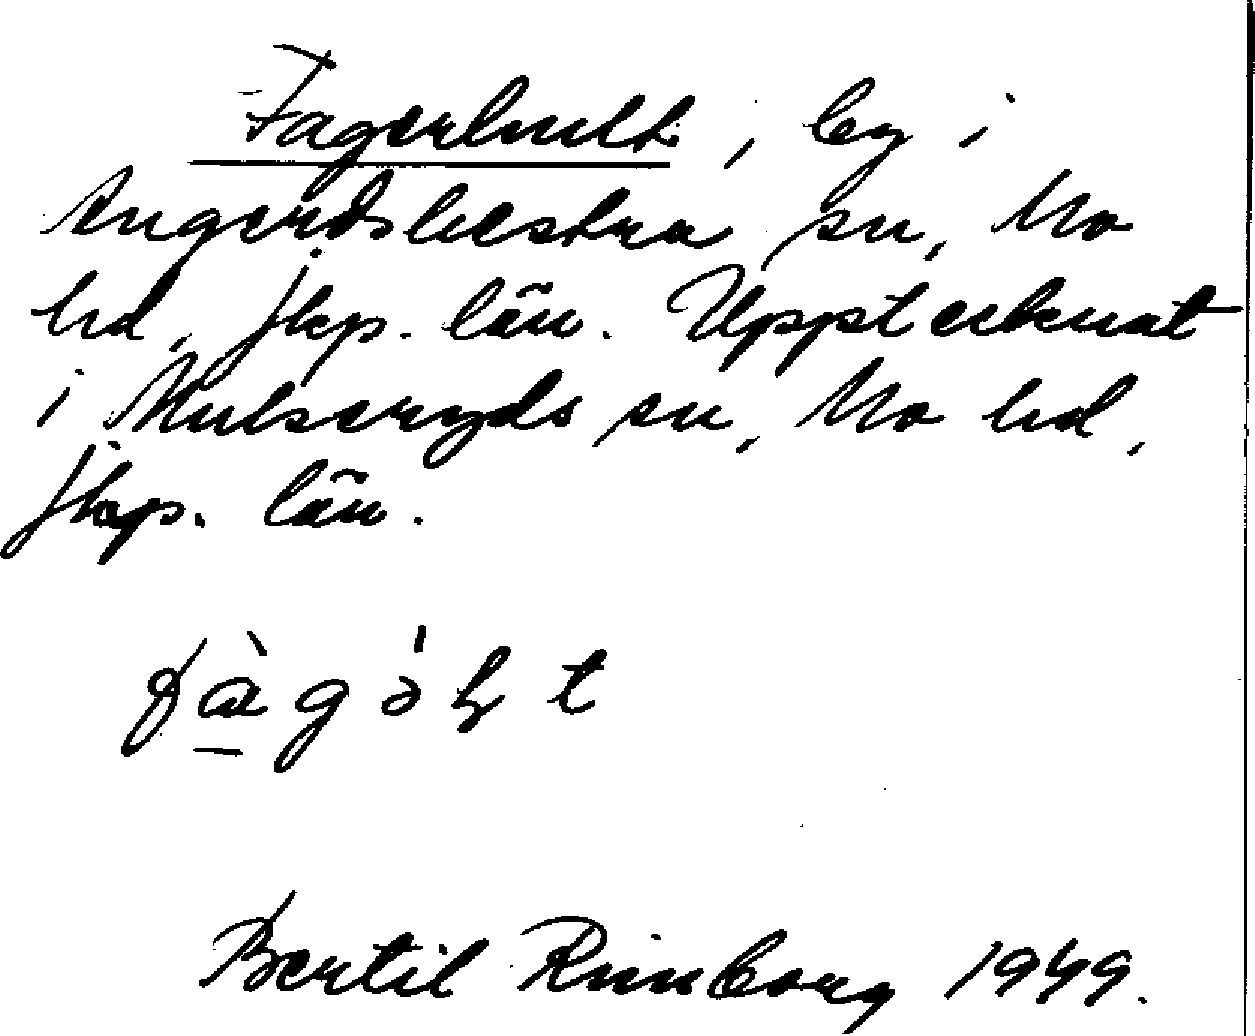 Fagerhult, by i
Angerdshestra sn, Mo
hd, Jkp. län. Upptecknat
i Mulseryds sn, Mo hd,
Jkp. län.
Bertil Rimborg 1949.